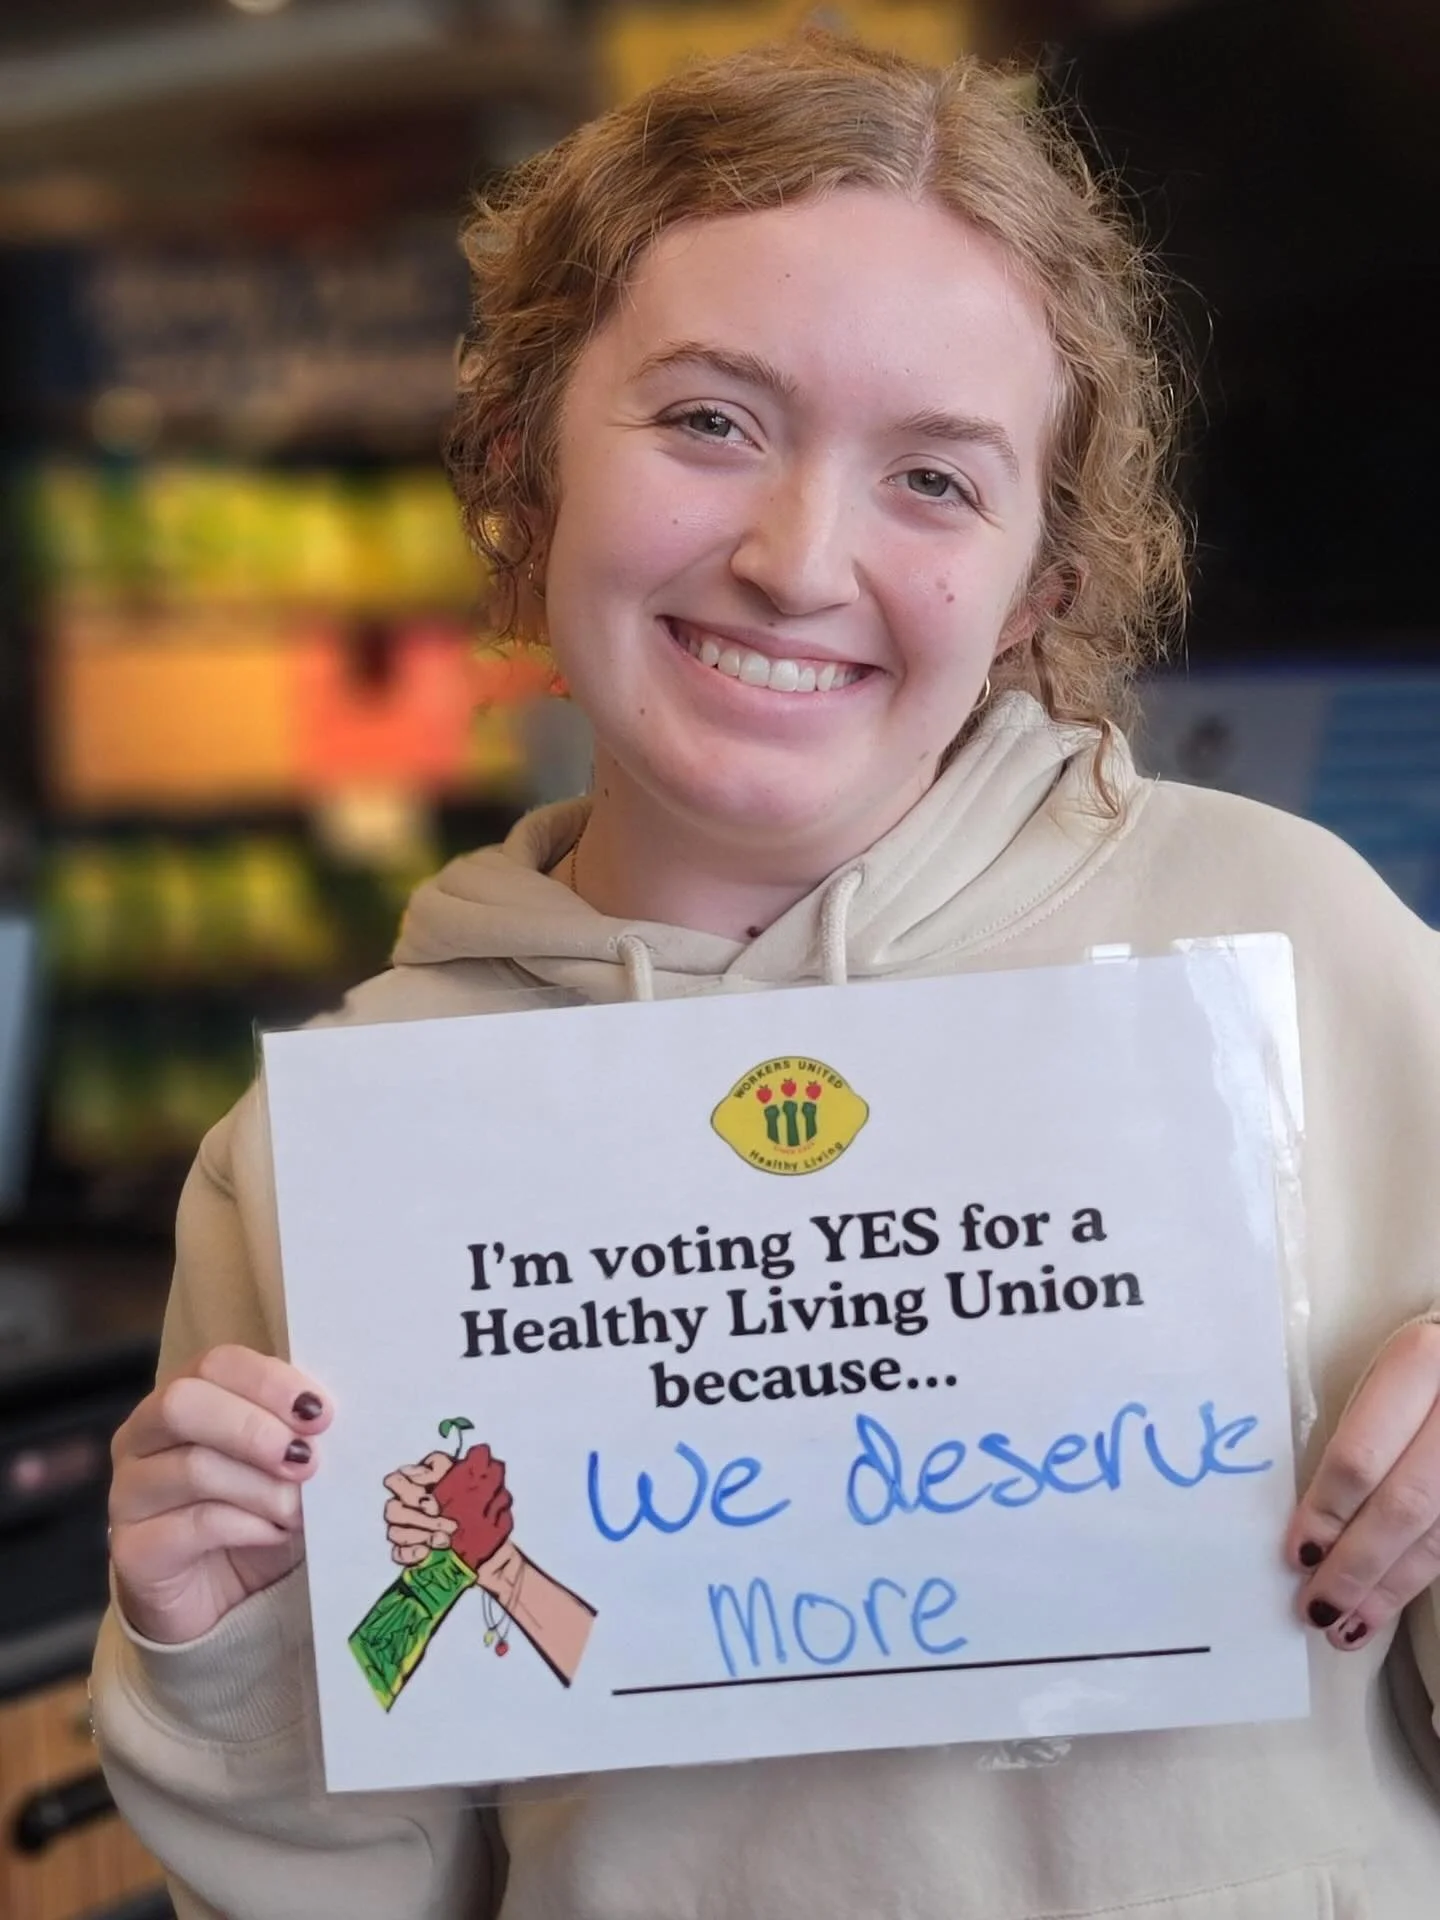 WORKERS UNITED
Healthy Living
I'm voting YES for a
Healthy Living Union
because...
We deserve
more